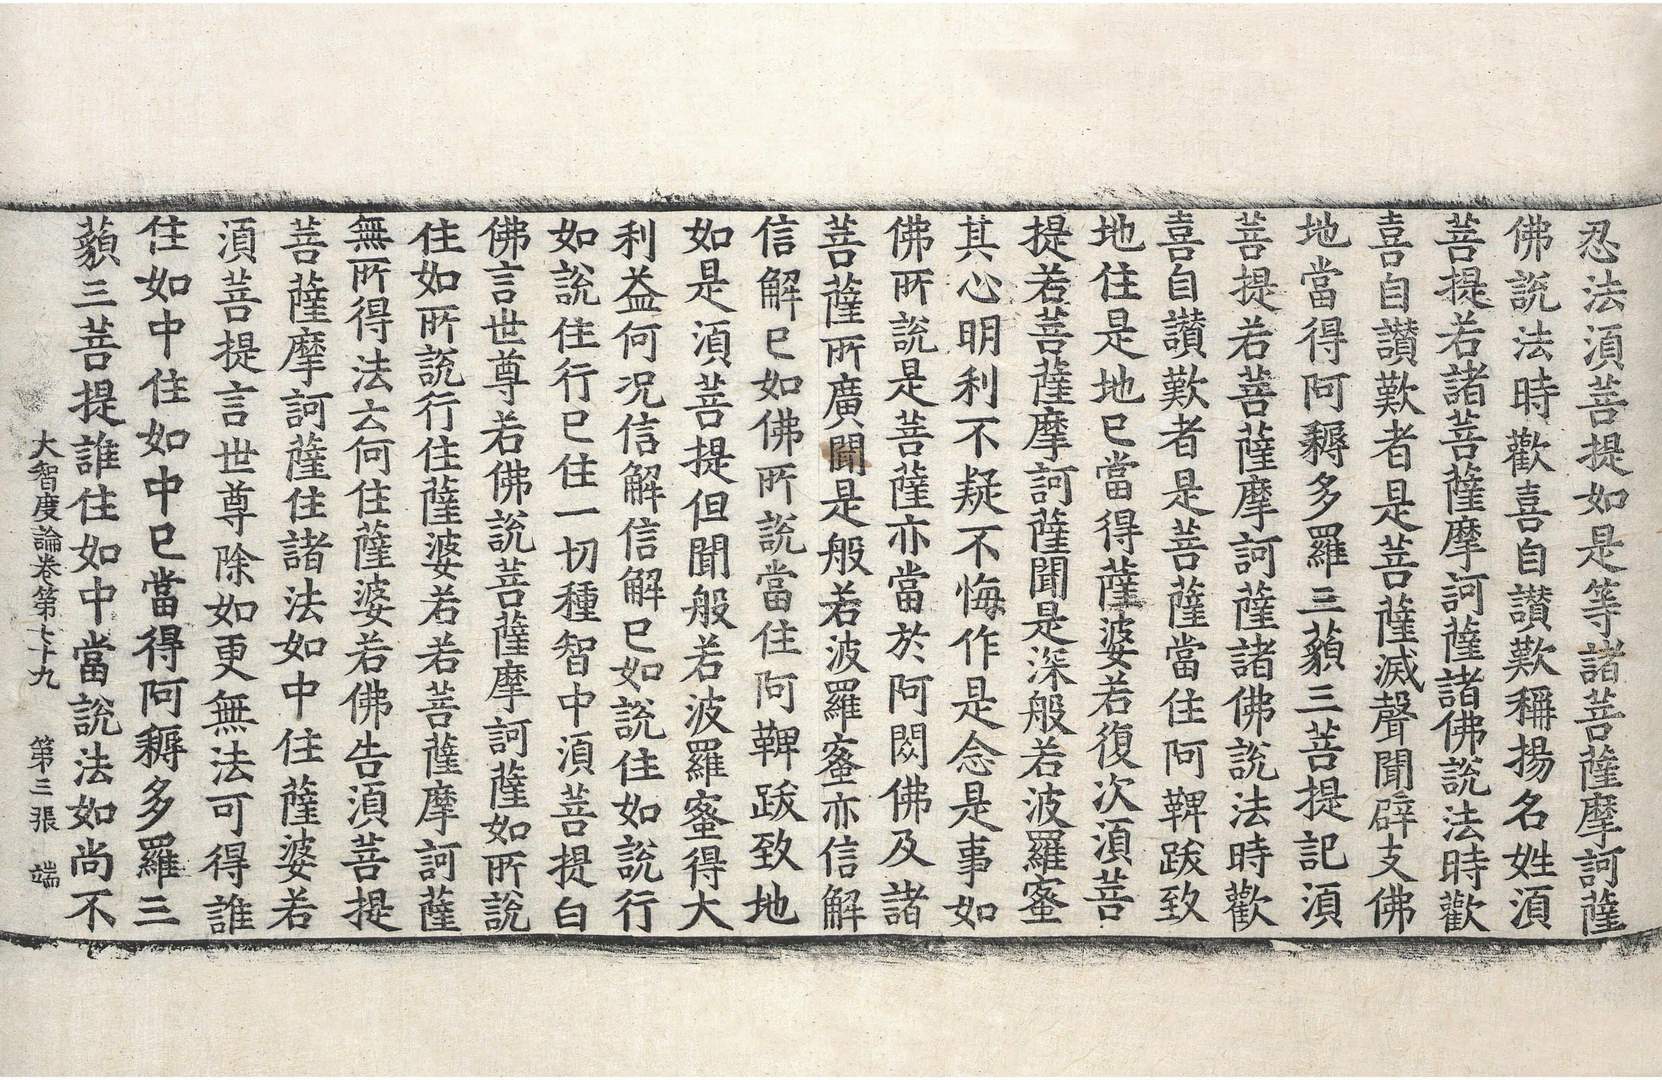 忍法湏菩提如是等諸菩薩摩訶薩
佛說法時歡喜自讃歎稱揚名姓湏
菩提若諸菩薩摩訶薩諸佛說法時歡
喜自讃歎者是菩薩滅聲聞辟支佛
地當得阿耨多羅三藐三菩提記湏
菩提若菩薩摩訶薩諸佛說法時歡
喜自讃歎者是菩薩當住阿鞞跋致
地住是地已當得薩婆若復次湏菩
提若菩薩摩訶薩聞是深般若波羅蜜
其心明利不疑不悔作是念是事如
佛所說是菩薩亦當於阿閦佛及諸
菩薩所廣聞是般若波羅蜜亦信解
信解已如佛所說當住阿鞞跋致地
如是湏菩提但聞般若波羅蜜得大
利益何况信解信解已如說住如說行
如說住行已住一切種智中湏菩提白
佛言世尊若佛說菩薩摩訶薩如所說
住如所說行住薩婆若若菩薩摩訶薩
無所得法云何住薩婆若佛告湏菩提
菩薩摩訶薩住諸法如中住薩婆若
湏菩提言世尊除如更無法可得誰
住如中住如中已當得阿耨多羅三
藐三菩提誰住如中當說法如尚不
大智度論卷第七十九 第三張 端